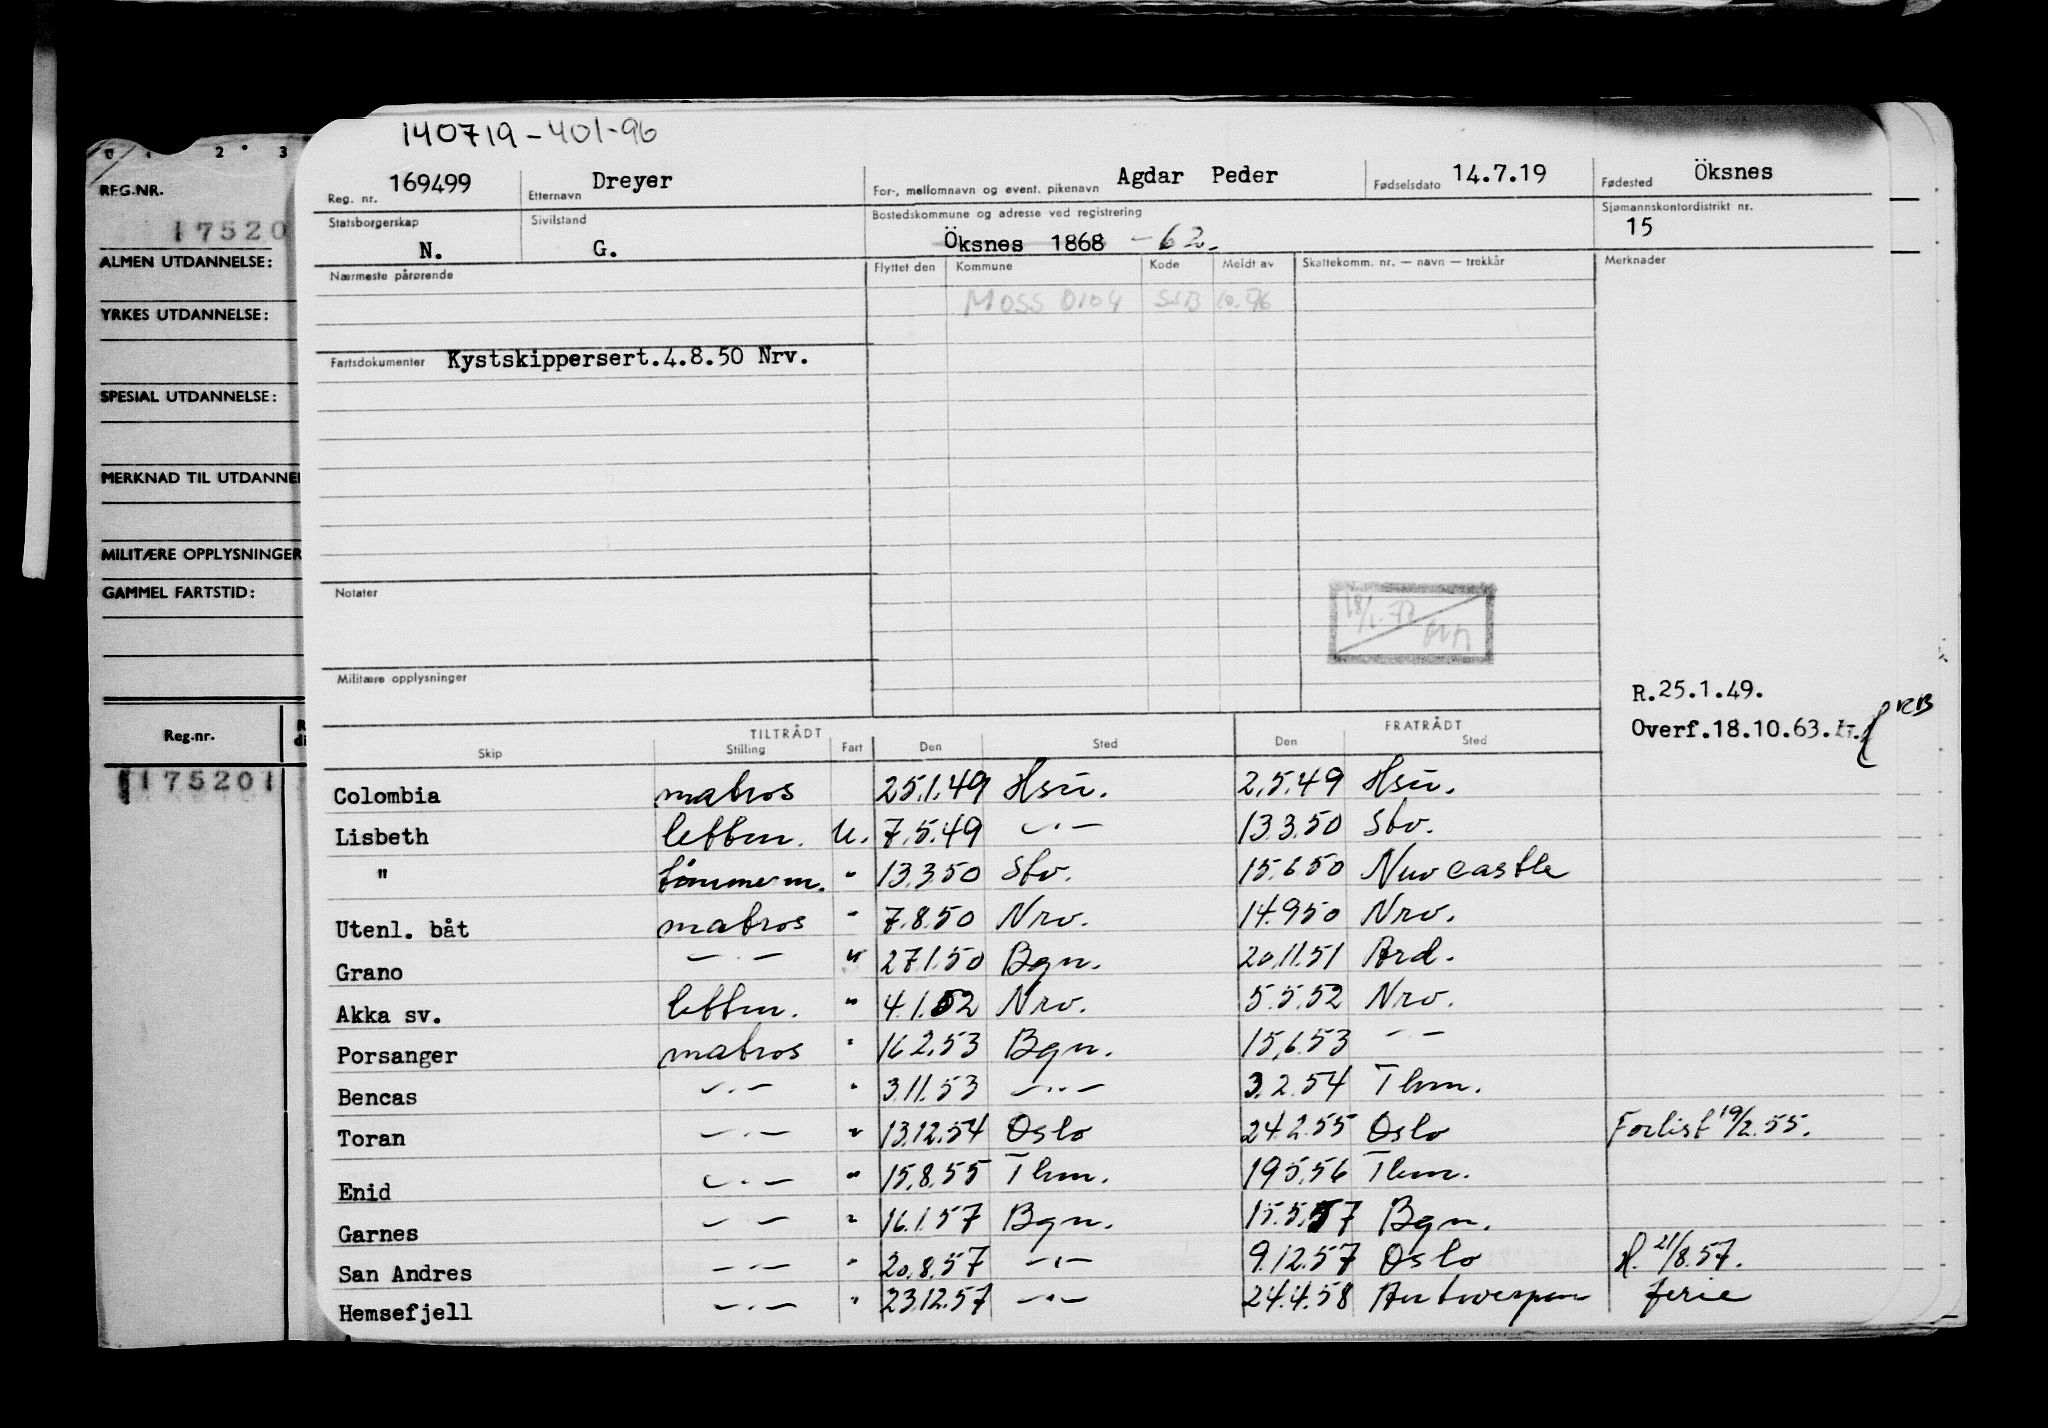 140719-401-96
0 1 2 3
REG.NR.
17520
ALMEN UTDANNELSE:
YRKES UTDANNELSE:
SPESIAL UTDANNELSE:
MERKNAD TIL UTDANNEL
MILITÆRE OPPLYSNINGER
GAMMEL FARTSTID:
Reg.nr.
175201
Reg. nr. 169499 Etternavn Dreyer For-, mellomnavn og event. pikenavn Agdar Peder Fødselsdato 14.7.19 Fødested Öksnes
Statsborgerskap N. Sivilstand G. Bostedskommune og adresse ved registrering Öksnes 1868 -62. Sjømannskontordistrikt nr. 15
Nærmeste pårørende Flyttet den Kommune Kode Meldt av Skattekomm. nr. — navn — trekkår Merknader
MOSS 0104 SIB 10.76
Fartsdokumenter Kystskippersert.4.8.50 Nrv.
Notater
Militære opplysninger
R.25.1.49.
Overf.18.10.63.
TILTRÅDT FRATRÅDT
Skip Stilling Fart Den Sted Den Sted
Colombia matros 25.1.49 Hsu. 2.5.49 Hsu.
Lisbeth lettm. U. 7.5.49 —.— 13.3.50 Stv.
" tømmerm. " 13.3.50 Stv. 15.6.50 Newcastle
Utenl. båt matros " 7.8.50 Nrv. 14.9.50 Nrv.
Grano —.— " 27.1.50 Bgn. 20.11.51 Ard.
Akka sv. lettm. " 4.1.52 Nrv. 5.5.52 Nrv.
Porsanger matros " 16.2.53 Bgn. 15.6.53 —.—
Bencas —.— " 3.11.53 —.— 3.2.54 Thm.
Toran —.— " 13.12.54 Oslo 24.2.55 Oslo Forlist 19/2.55.
Enid —.— " 15.8.55 Thm. 19.5.56 Thm.
Garnes —.— " 16.1.57 Bgn. 15.5.57 Bgn.
San Andres —.— " 20.8.57 —.— 9.12.57 Oslo H. 21/8.57.
Hemsefjell —.— " 23.12.57 —.— 24.4.58 Antwerpen ferie